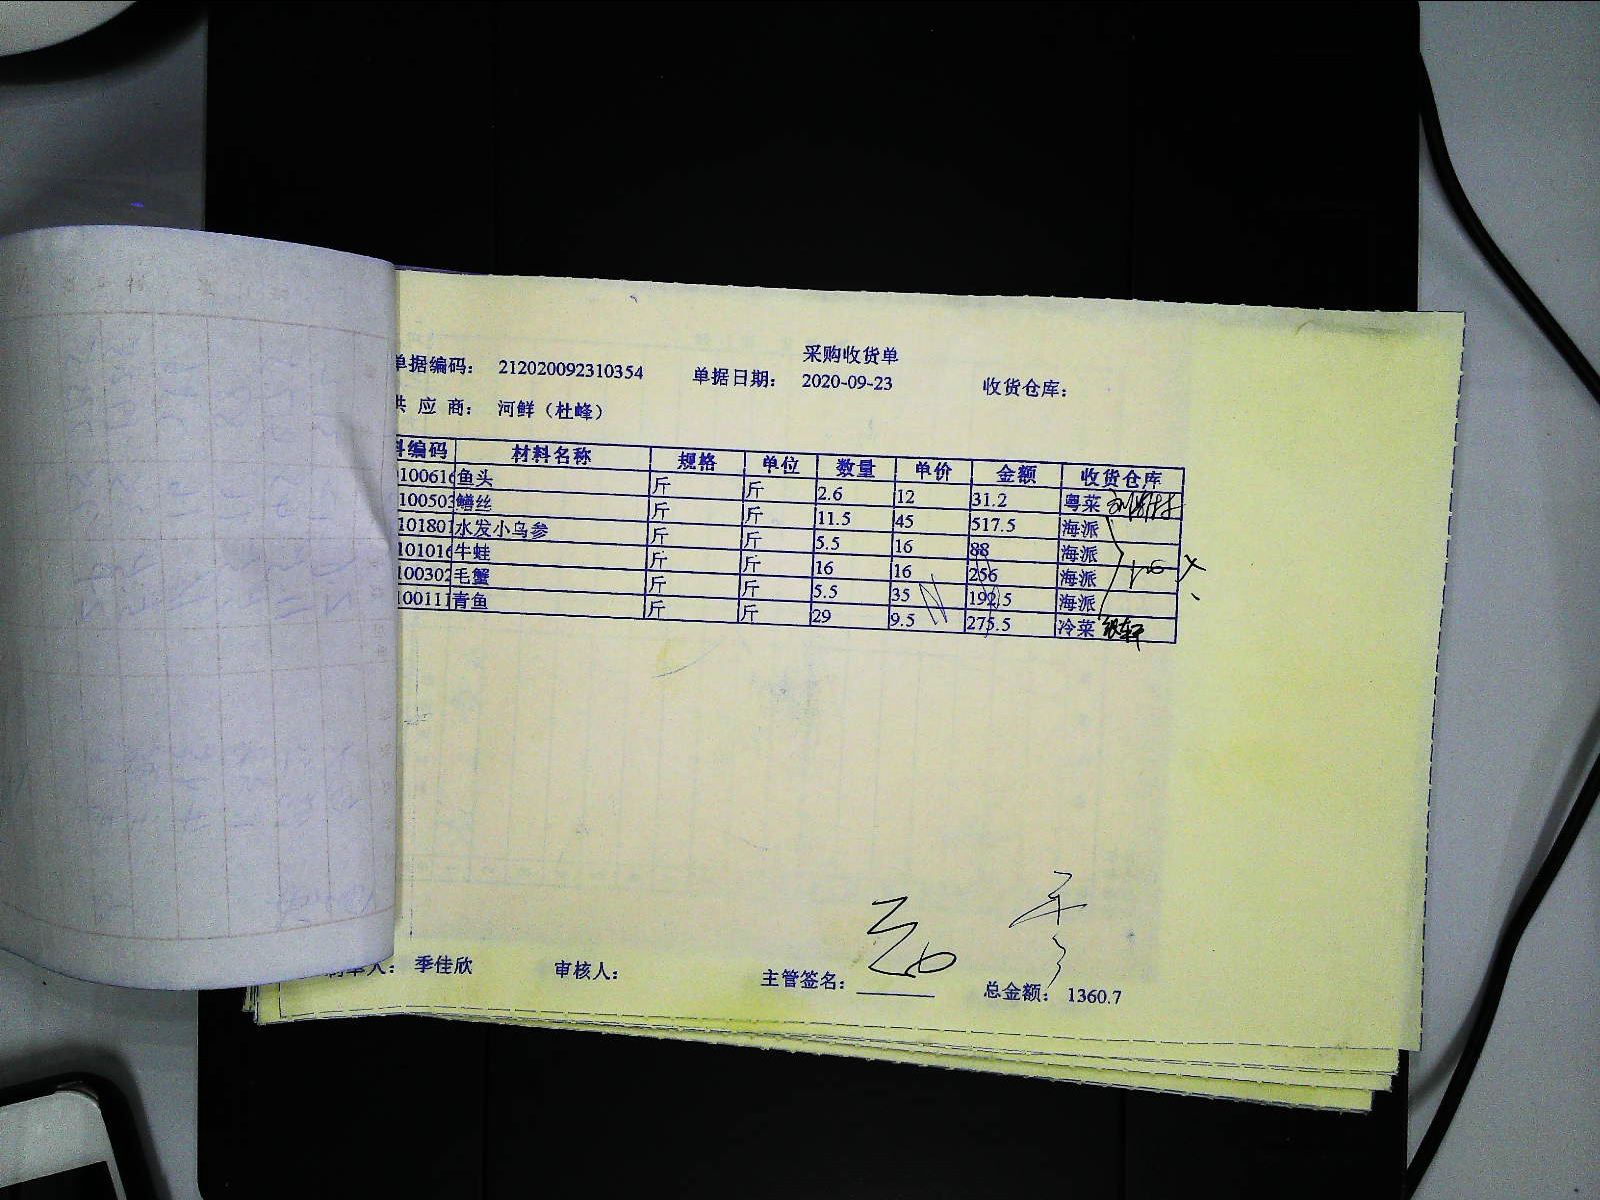 采购收货单
单据编码： 212020092310354 单据日期： 2020-09-23 收货仓库：
供 应 商： 河鲜（杜峰）
料编码 材料名称 规格 单位 数量 单价 金额 收货仓库
100616 鱼头 斤 斤 2.6 12 31.2 粤菜
100503 鳝丝 斤 斤 11.5 45 517.5 海派
101801 水发小乌参 斤 斤 5.5 16 88 海派
101016 牛蛙 斤 斤 16 16 256 海派
100302 毛蟹 斤 斤 5.5 35 192.5 海派
100111 青鱼 斤 斤 29 9.5 275.5 冷菜
制单人： 季佳欣 审核人： 主管签名： 总金额： 1360.7